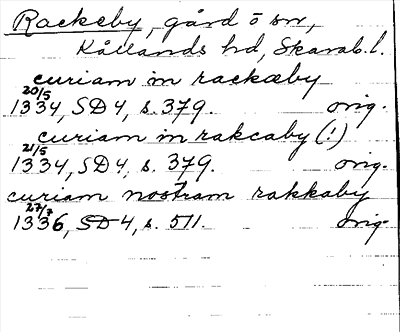 Rackeby, gård ö sn,
Kållands hd, Skarab. l.
curiam in rackæby
20/5
1334, SD 4, s. 379. orig.
curiam in rakcaby (!)
21/5
1334, SD 4, s. 379. orig.
curiam nostram rakkaby
27/7
1336, SD 4, s. 511. orig.